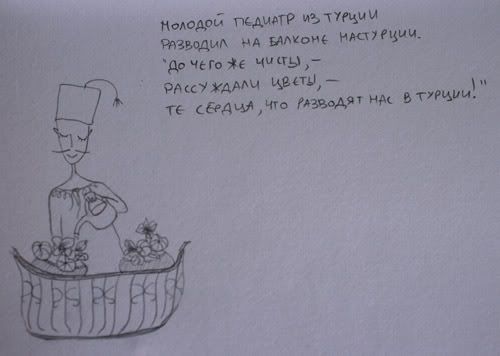 МОЛОДОЙ ПЕДИАТР ИЗ ТУРЦИИ
РАЗВОДИЛ НА БАЛКОНЕ НАСТУРЦИИ.
"ДО ЧЕГО ЖЕ ЧИСТЫ, –
РАССУЖДАЛИ ЦВЕТЫ, –
ТЕ СЕРДЦА, ЧТО РАЗВОДЯТ НАС В ТУРЦИИ!"